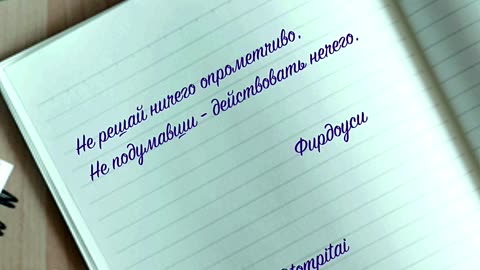 Не решай ничего опрометчиво.
Не подумавши - действовать нечего.
Фирдоуси